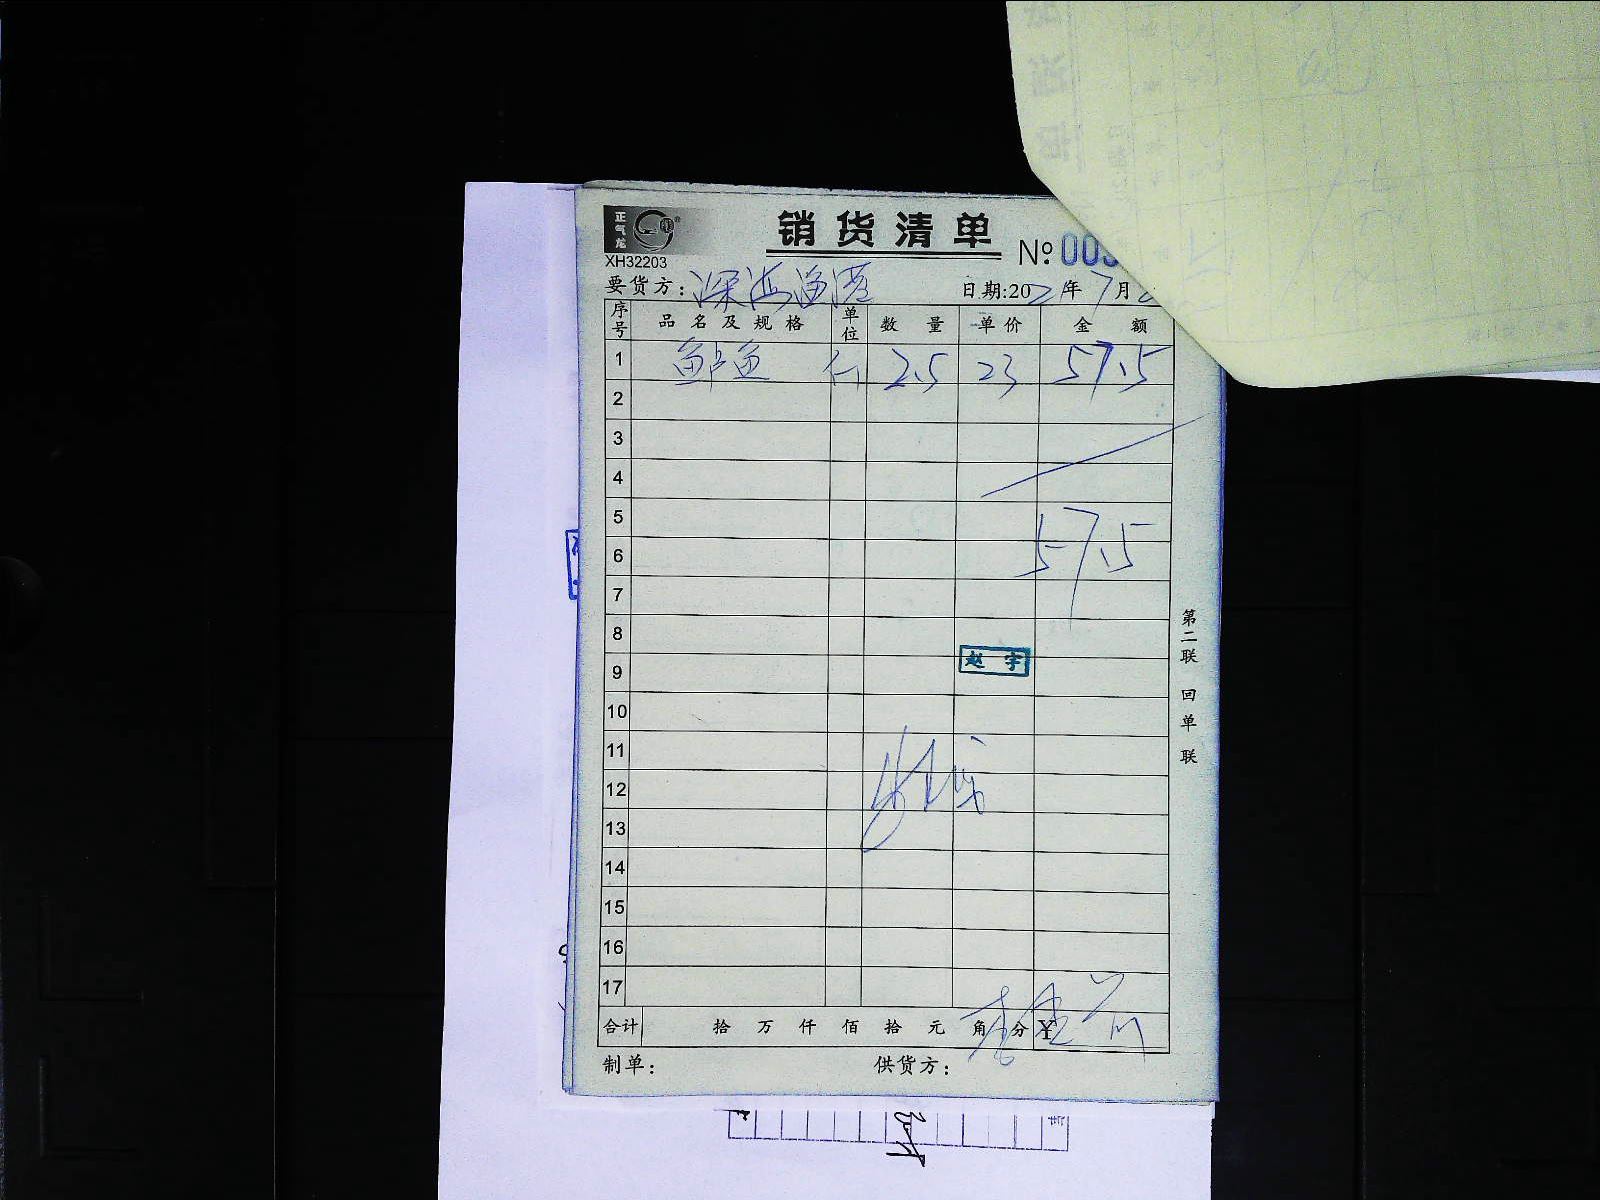 正气龙
销货清单
XH32203
No: 003
要货方: 深海渔港 日期:202 年 7 月
序号 品名及规格 单位 数量 单价 金额
1 鲈鱼 斤 2.5 23 57.5
2
3
4
5
57.5
6
7
8
赵宇
9
10
11
12
13
14
15
16
17
合计 拾 万 仟 佰 拾 元 角 分 ¥
制单: 供货方:
第二联 回单联